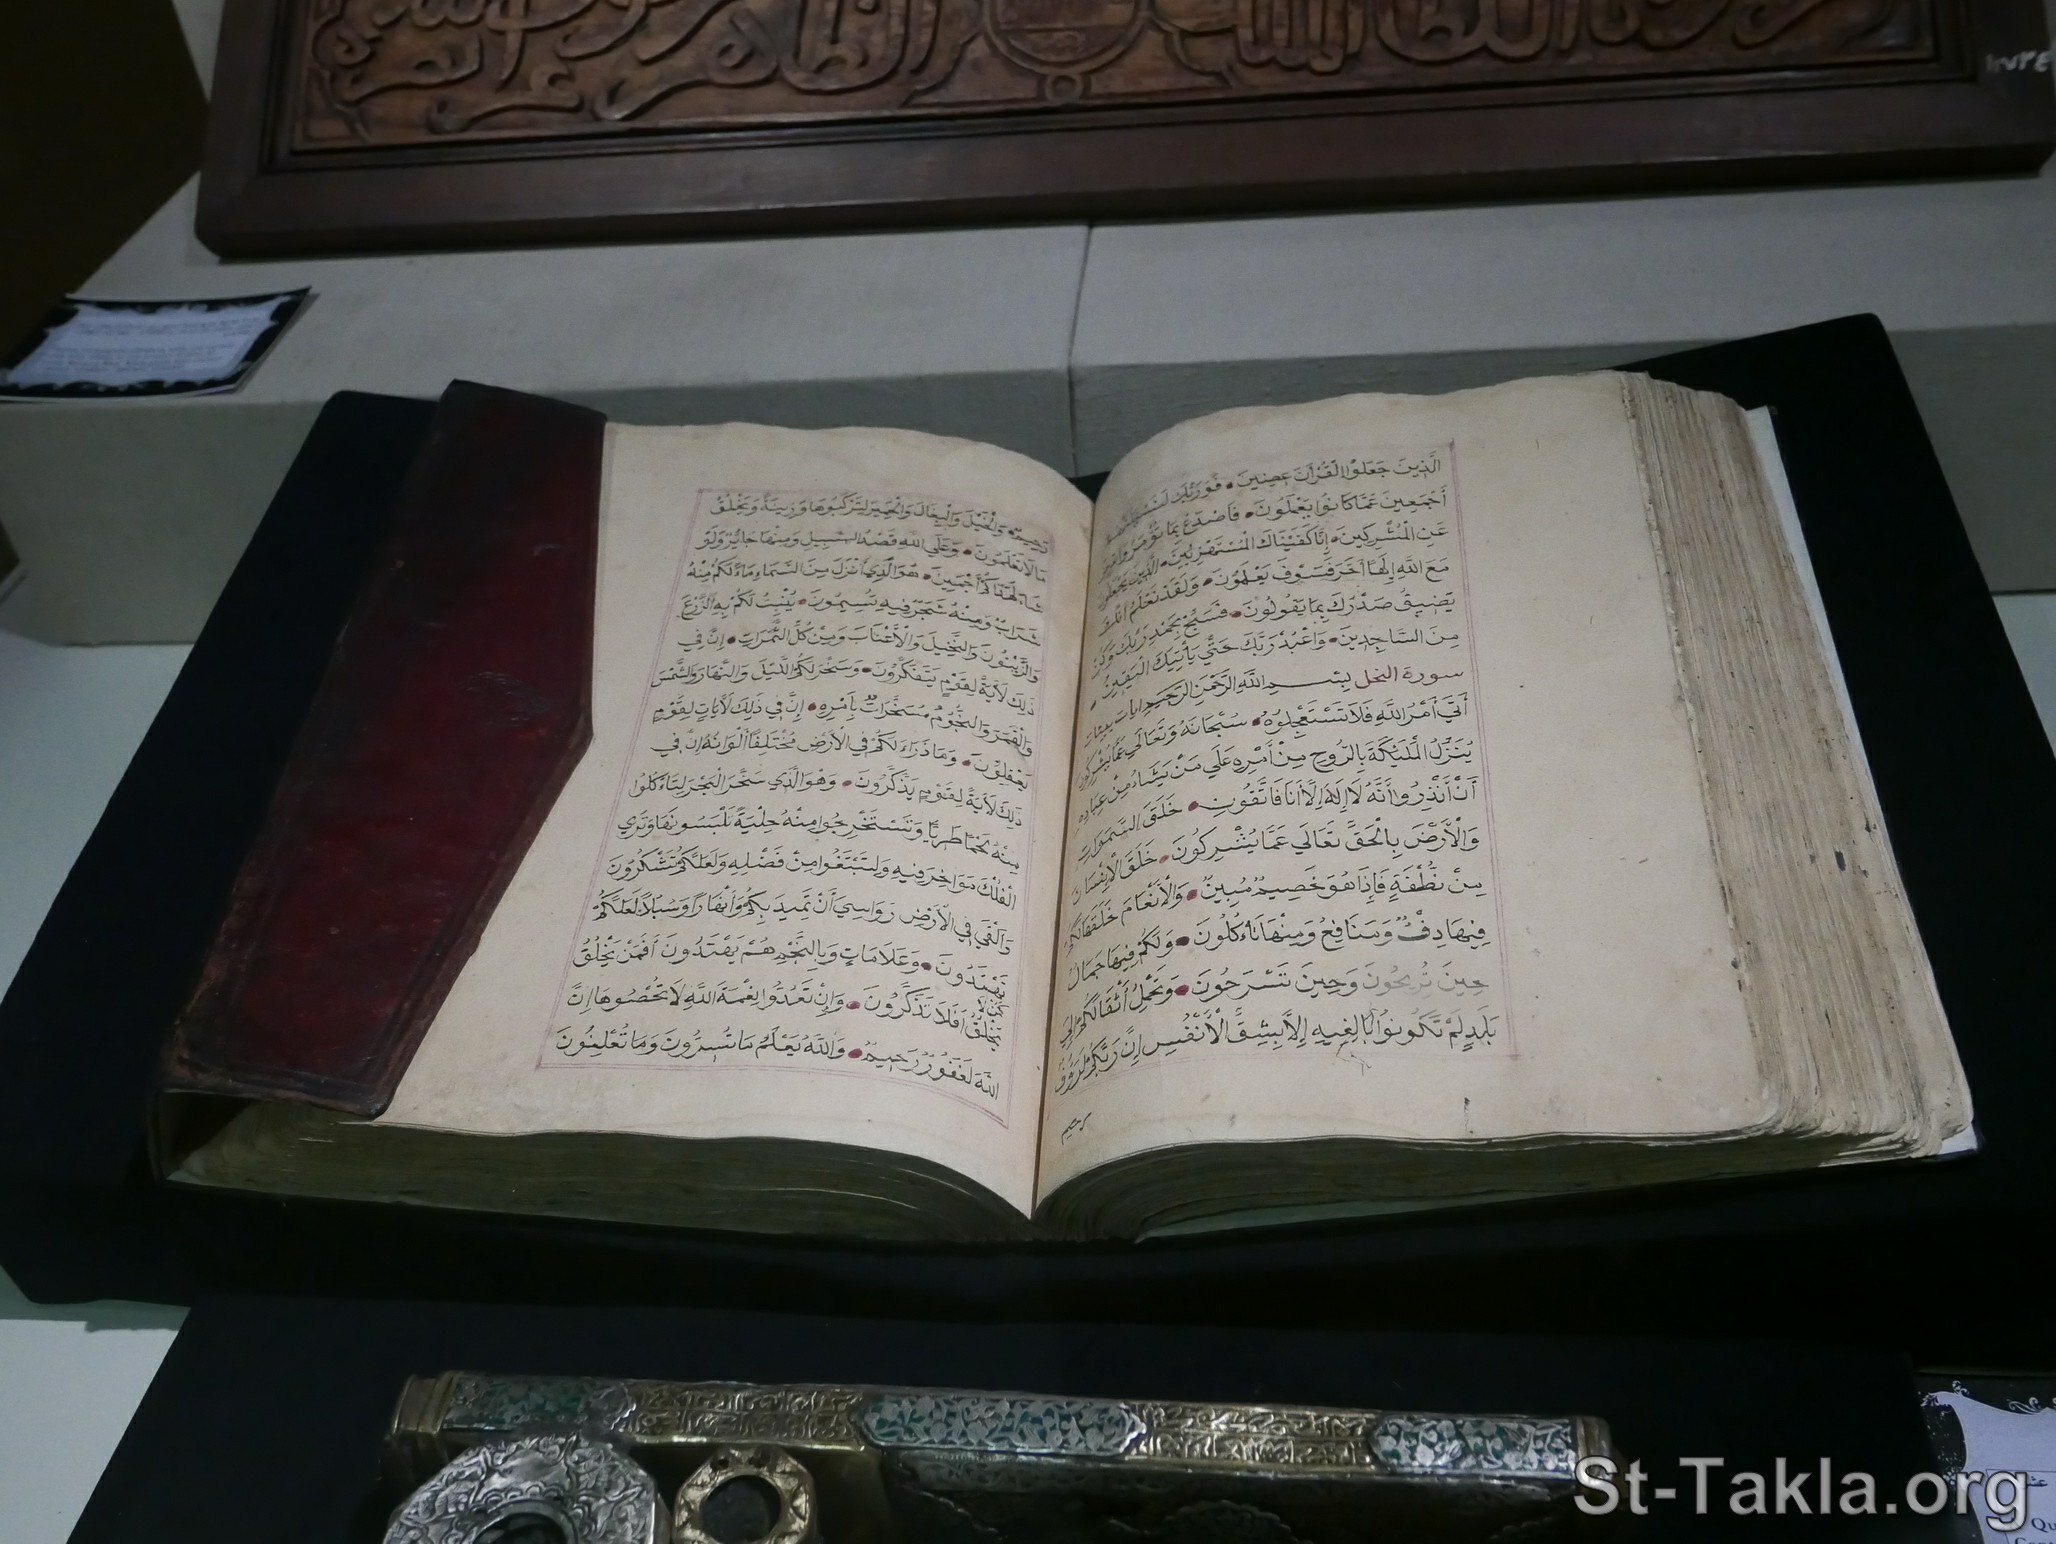 الَّذِينَ جَعَلُوا الْقُرْآنَ عِضِينَ • فَوَرَبِّكَ
أَجْمَعِينَ عَمَّا كَانُوا يَعْمَلُونَ • فَاصْدَعْ بِمَا تُؤْمَرُ وَأَعْرِضْ
عَنِ الْمُشْرِكِينَ • إِنَّا كَفَيْنَاكَ الْمُسْتَهْزِئِينَ • الَّذِينَ يَجْعَلُونَ
مَعَ اللَّهِ إِلَهًا آخَرَ فَسَوْفَ يَعْلَمُونَ • وَلَقَدْ نَعْلَمُ أَنَّكَ
يَضِيقُ صَدْرُكَ بِمَا يَقُولُونَ • فَسَبِّحْ بِحَمْدِ رَبِّكَ وَكُنْ
مِنَ السَّاجِدِينَ • وَاعْبُدْ رَبَّكَ حَتَّى يَأْتِيَكَ الْيَقِينُ •
سورة النحل بِسْمِ اللَّهِ الرَّحْمَنِ الرَّحِيمِ
أَتَى أَمْرُ اللَّهِ فَلَا تَسْتَعْجِلُوهُ • سُبْحَانَهُ وَتَعَالَى عَمَّا يُشْرِكُونَ
يُنَزِّلُ الْمَلَئِكَةَ بِالرُّوحِ مِنْ أَمْرِهِ عَلَى مَنْ يَشَاءُ مِنْ عِبَادِهِ
أَنْ أَنْذِرُوا أَنَّهُ لَا إِلَهَ إِلَّا أَنَا فَاتَّقُونِ • خَلَقَ السَّمَوَاتِ
وَالْأَرْضَ بِالْحَقِّ تَعَالَى عَمَّا يُشْرِكُونَ • خَلَقَ الْإِنْسَانَ
مِنْ نُطْفَةٍ فَإِذَا هُوَ خَصِيمٌ مُبِينٌ • وَالْأَنْعَامَ خَلَقَهَا لَكُمْ
فِيهَا دِفْءٌ وَمَنَافِعُ وَمِنْهَا تَأْكُلُونَ • وَلَكُمْ فِيهَا جَمَالٌ
حِينَ تُرِيحُونَ وَحِينَ تَسْرَحُونَ • وَتَحْمِلُ أَثْقَالَكُمْ إِلَى
بَلَدٍ لَمْ تَكُونُوا بَالِغِيهِ إِلَّا بِشِقِّ الْأَنْفُسِ إِنَّ رَبَّكُمْ لَرَؤُفٌ
رحيم
رَحِيمٌ • وَالْخَيْلَ وَالْبِغَالَ وَالْحَمِيرَ لِتَرْكَبُوهَا وَزِينَةً وَيَخْلُقُ
مَا لَا تَعْلَمُونَ • وَعَلَى اللَّهِ قَصْدُ السَّبِيلِ وَمِنْهَا جَائِرٌ وَلَوْ
شَاءَ لَهَدَاكُمْ أَجْمَعِينَ • هُوَ الَّذِي أَنْزَلَ مِنَ السَّمَاءِ مَاءً لَكُمْ مِنْهُ
شَرَابٌ وَمِنْهُ شَجَرٌ فِيهِ تُسِيمُونَ • يُنْبِتُ لَكُمْ بِهِ الزَّرْعَ
وَالزَّيْتُونَ وَالنَّخِيلَ وَالْأَعْنَابَ وَمِنْ كُلِّ الثَّمَرَاتِ • إِنَّ فِي
ذَلِكَ لَآيَةً لِقَوْمٍ يَتَفَكَّرُونَ • وَسَخَّرَ لَكُمُ اللَّيْلَ وَالنَّهَارَ وَالشَّمْسَ
وَالْقَمَرَ وَالنُّجُومُ مُسَخَّرَاتٌ بِأَمْرِهِ • إِنَّ فِي ذَلِكَ لَآيَاتٍ لِقَوْمٍ
يَعْقِلُونَ • وَمَا ذَرَأَ لَكُمْ فِي الْأَرْضِ مُخْتَلِفًا أَلْوَانُهُ إِنَّ فِي
ذَلِكَ لَآيَةً لِقَوْمٍ يَذَّكَّرُونَ • وَهُوَ الَّذِي سَخَّرَ الْبَحْرَ لِتَأْكُلُوا
مِنْهُ لَحْمًا طَرِيًّا وَتَسْتَخْرِجُوا مِنْهُ حِلْيَةً تَلْبَسُونَهَا وَتَرَى
الْفُلْكَ مَوَاخِرَ فِيهِ وَلِتَبْتَغُوا مِنْ فَضْلِهِ وَلَعَلَّكُمْ تَشْكُرُونَ
وَأَلْقَى فِي الْأَرْضِ رَوَاسِيَ أَنْ تَمِيدَ بِكُمْ وَأَنْهَارًا وَسُبُلًا لَعَلَّكُمْ
تَهْتَدُونَ • وَعَلَامَاتٍ وَبِالنَّجْمِ هُمْ يَهْتَدُونَ أَفَمَنْ يَخْلُقُ
كَمَنْ لَا يَخْلُقُ أَفَلَا تَذَكَّرُونَ • وَإِنْ تَعُدُّوا نِعْمَةَ اللَّهِ لَا تُحْصُوهَا إِنَّ
اللَّهَ لَغَفُورٌ رَحِيمٌ • وَاللَّهُ يَعْلَمُ مَا تُسِرُّونَ وَمَا تُعْلِنُونَ
St-Takla.org